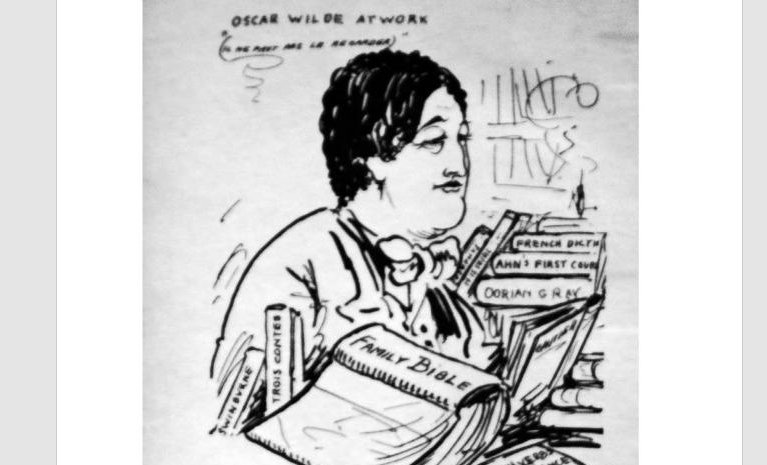 OSCAR WILDE AT WORK
"(IL NE FAUT PAS LE REGARDER)"
FRENCH DICTN
AHN'S FIRST COURSE
DORIAN GRAY
GAUTIER
TROIS CONTES
SWINBURNE
FAMILY BIBLE